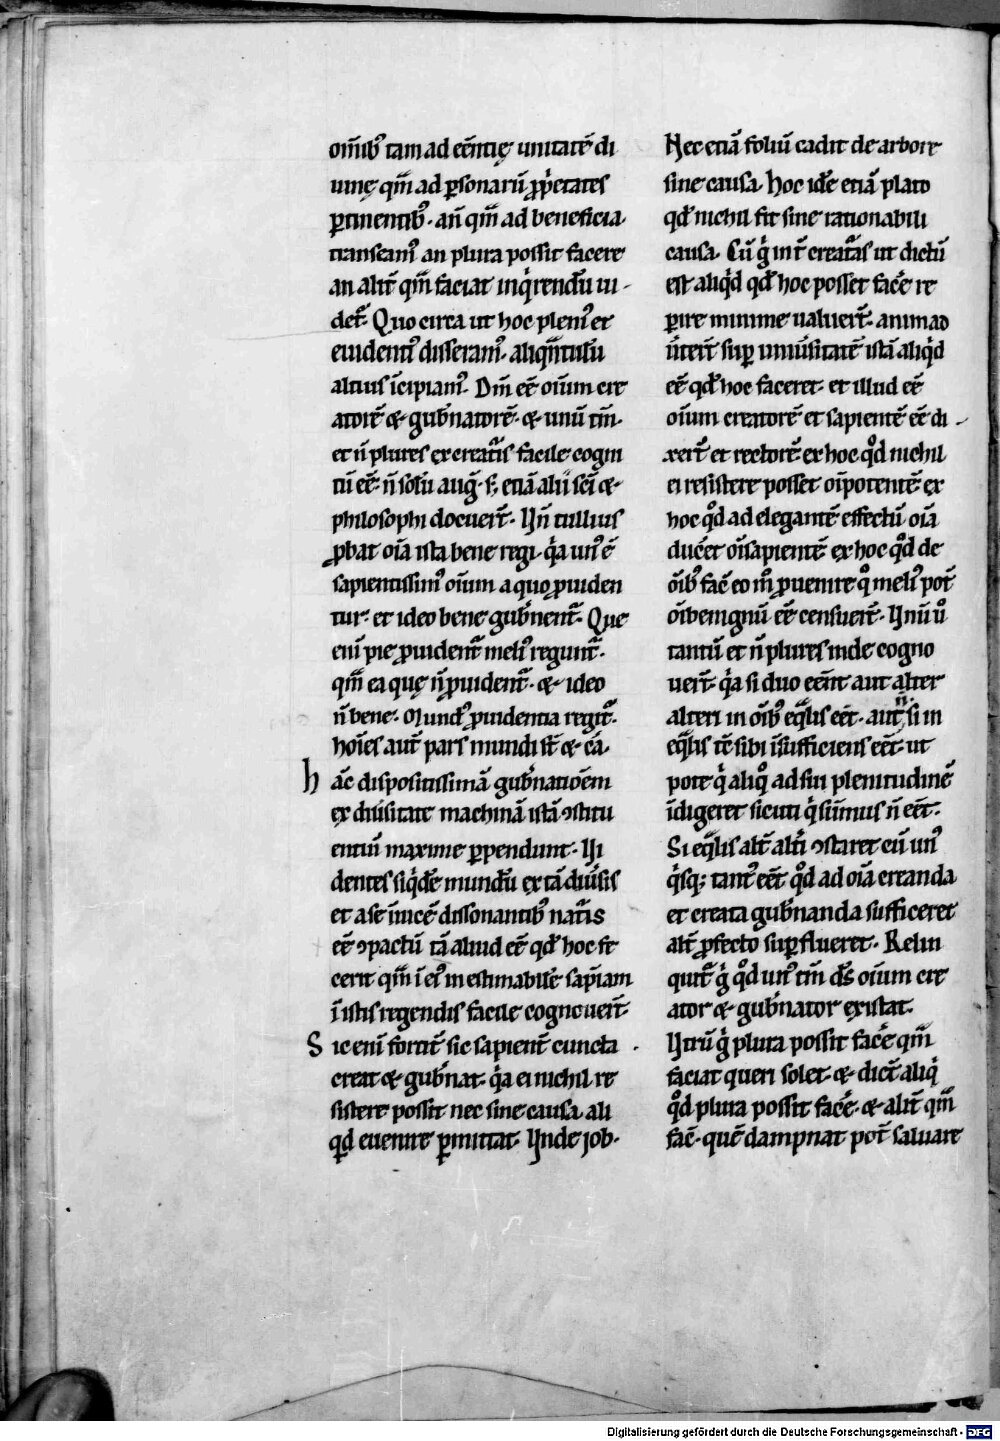 om̄ib᷒ tam ad eēntię unitatē di
uinę qm̄ ad ꝑsonarū ꝓp̄etates
ꝑtinentib᷒. an̄ qm̄ ad beneficia.
transeam᷒ an plura possit facere
an alit̄ qm̄ faciat inq̇rendū ui-
det̄. Quo circa ut hoc pleni᷒ et
euidenti᷒ disseram᷒. aliqn̄tulū
altius īcipiam᷒. Dm̄ eē oīum cre
atorē & gub̄natorē. & unū tm̄.
et n̄ plures ex creat̄is facile cogni
tū eē. n̄ solū auḡ. s; etiā alii sc̄i &
philosophi docuer̄t. Un̄ tullius
ꝓbat oīa ista bene regi. q̇a un᷒ ē
sapientissim᷒ oīum a quo ꝓuiden
tur. et ideo bene gub̄nent̄. Que
enī pie ꝓuident̄ meli᷒ regunt̄.
qm̄ ea quę n̄ ꝓuident̄. & ideo
n̄ bene. Mund᷒ ꝓuidentia regit̄.
hoīes aut̄ pars mundi st̄ & c̄a.
h āc dispositissimā gub̄natioēm
ex diūsitate machinā istā ꝯstitu
entiū maxime ꝑpendunt. Ui
dentes siq̇dē mundū ex tā diūsis
et a se īuicē dissonantib᷒ nat̄is
eē ꝯpactū tā aliud eē qd̄ hoc fe
cerit qm̄ ī ei᷒ inestimabilē sap̄iam
ī istis regendis facile cognouer̄t.
S ic enī fortit̄ sic sapient̄ cuncta
creat & gub̄nat. q̇a ei nichil re
sistere possit nec sine causa ali
qͥd euenire ꝑmittat. Unde job.
Nec etiā foliū cadit de arbore
sine causa. hoc idē etiā plato
qd̄ nichil fit sine rationabili
causa. Cū g̊ int̄ creat̄as ut dictū
est aliq̇d qd̄ hoc posset fac̄e re
ꝑire minime ualuer̄t. animad
ūter̄t suꝑ uniūsitatē istā aliq̇d
eē qd̄ hoc faceret. et illud eē
oīum creatorē et sapientē eē di-
xer̄t et rectorē ex hoc qͦd nichil
ei resistere posset oīpotentē ex
hoc qͦd ad elegantē effectū oīa
duc̄et oīsapientē ex hoc qͦd de
oīb᷒ fac̄ eo mͦ ꝓuenire qͦ meli᷒ pot̄
oībenignū eē censuer̄t. Unū ūͦ
tantū et n̄ plures inde cogno
uer̄t. q̇a si duo eēnt aut alter
alteri in oīb᷒ eq̄lis eēt. aut n̄. si in
eq̄lis tē sibi īsufficiens eēt. ut
pote q̇ aliqͦ ad sui plenitudinē
īdigeret sicuti q̇ sūmus n̄ eēt.
Si eq̄lis alt̄ alt̄i ꝯstaret cū un᷒
q̇sq; tant᷒ eēt qͦd ad oīa creanda
et creata gub̄nanda sufficeret
alt̄ ꝓfecto suꝑflueret. Relin
quit̄ g̊ qͦd un᷒ tm̄ d̄s oīum cre
ator & gub̄nator existat.
Utrū g̊ plura possit fac̄e qm̄
faciat queri solet. & dict̄ aliq̇
qͦd plura possit fac̄e. & alit̄ qm̄
fac̄. quē dampnat pot̄ saluare